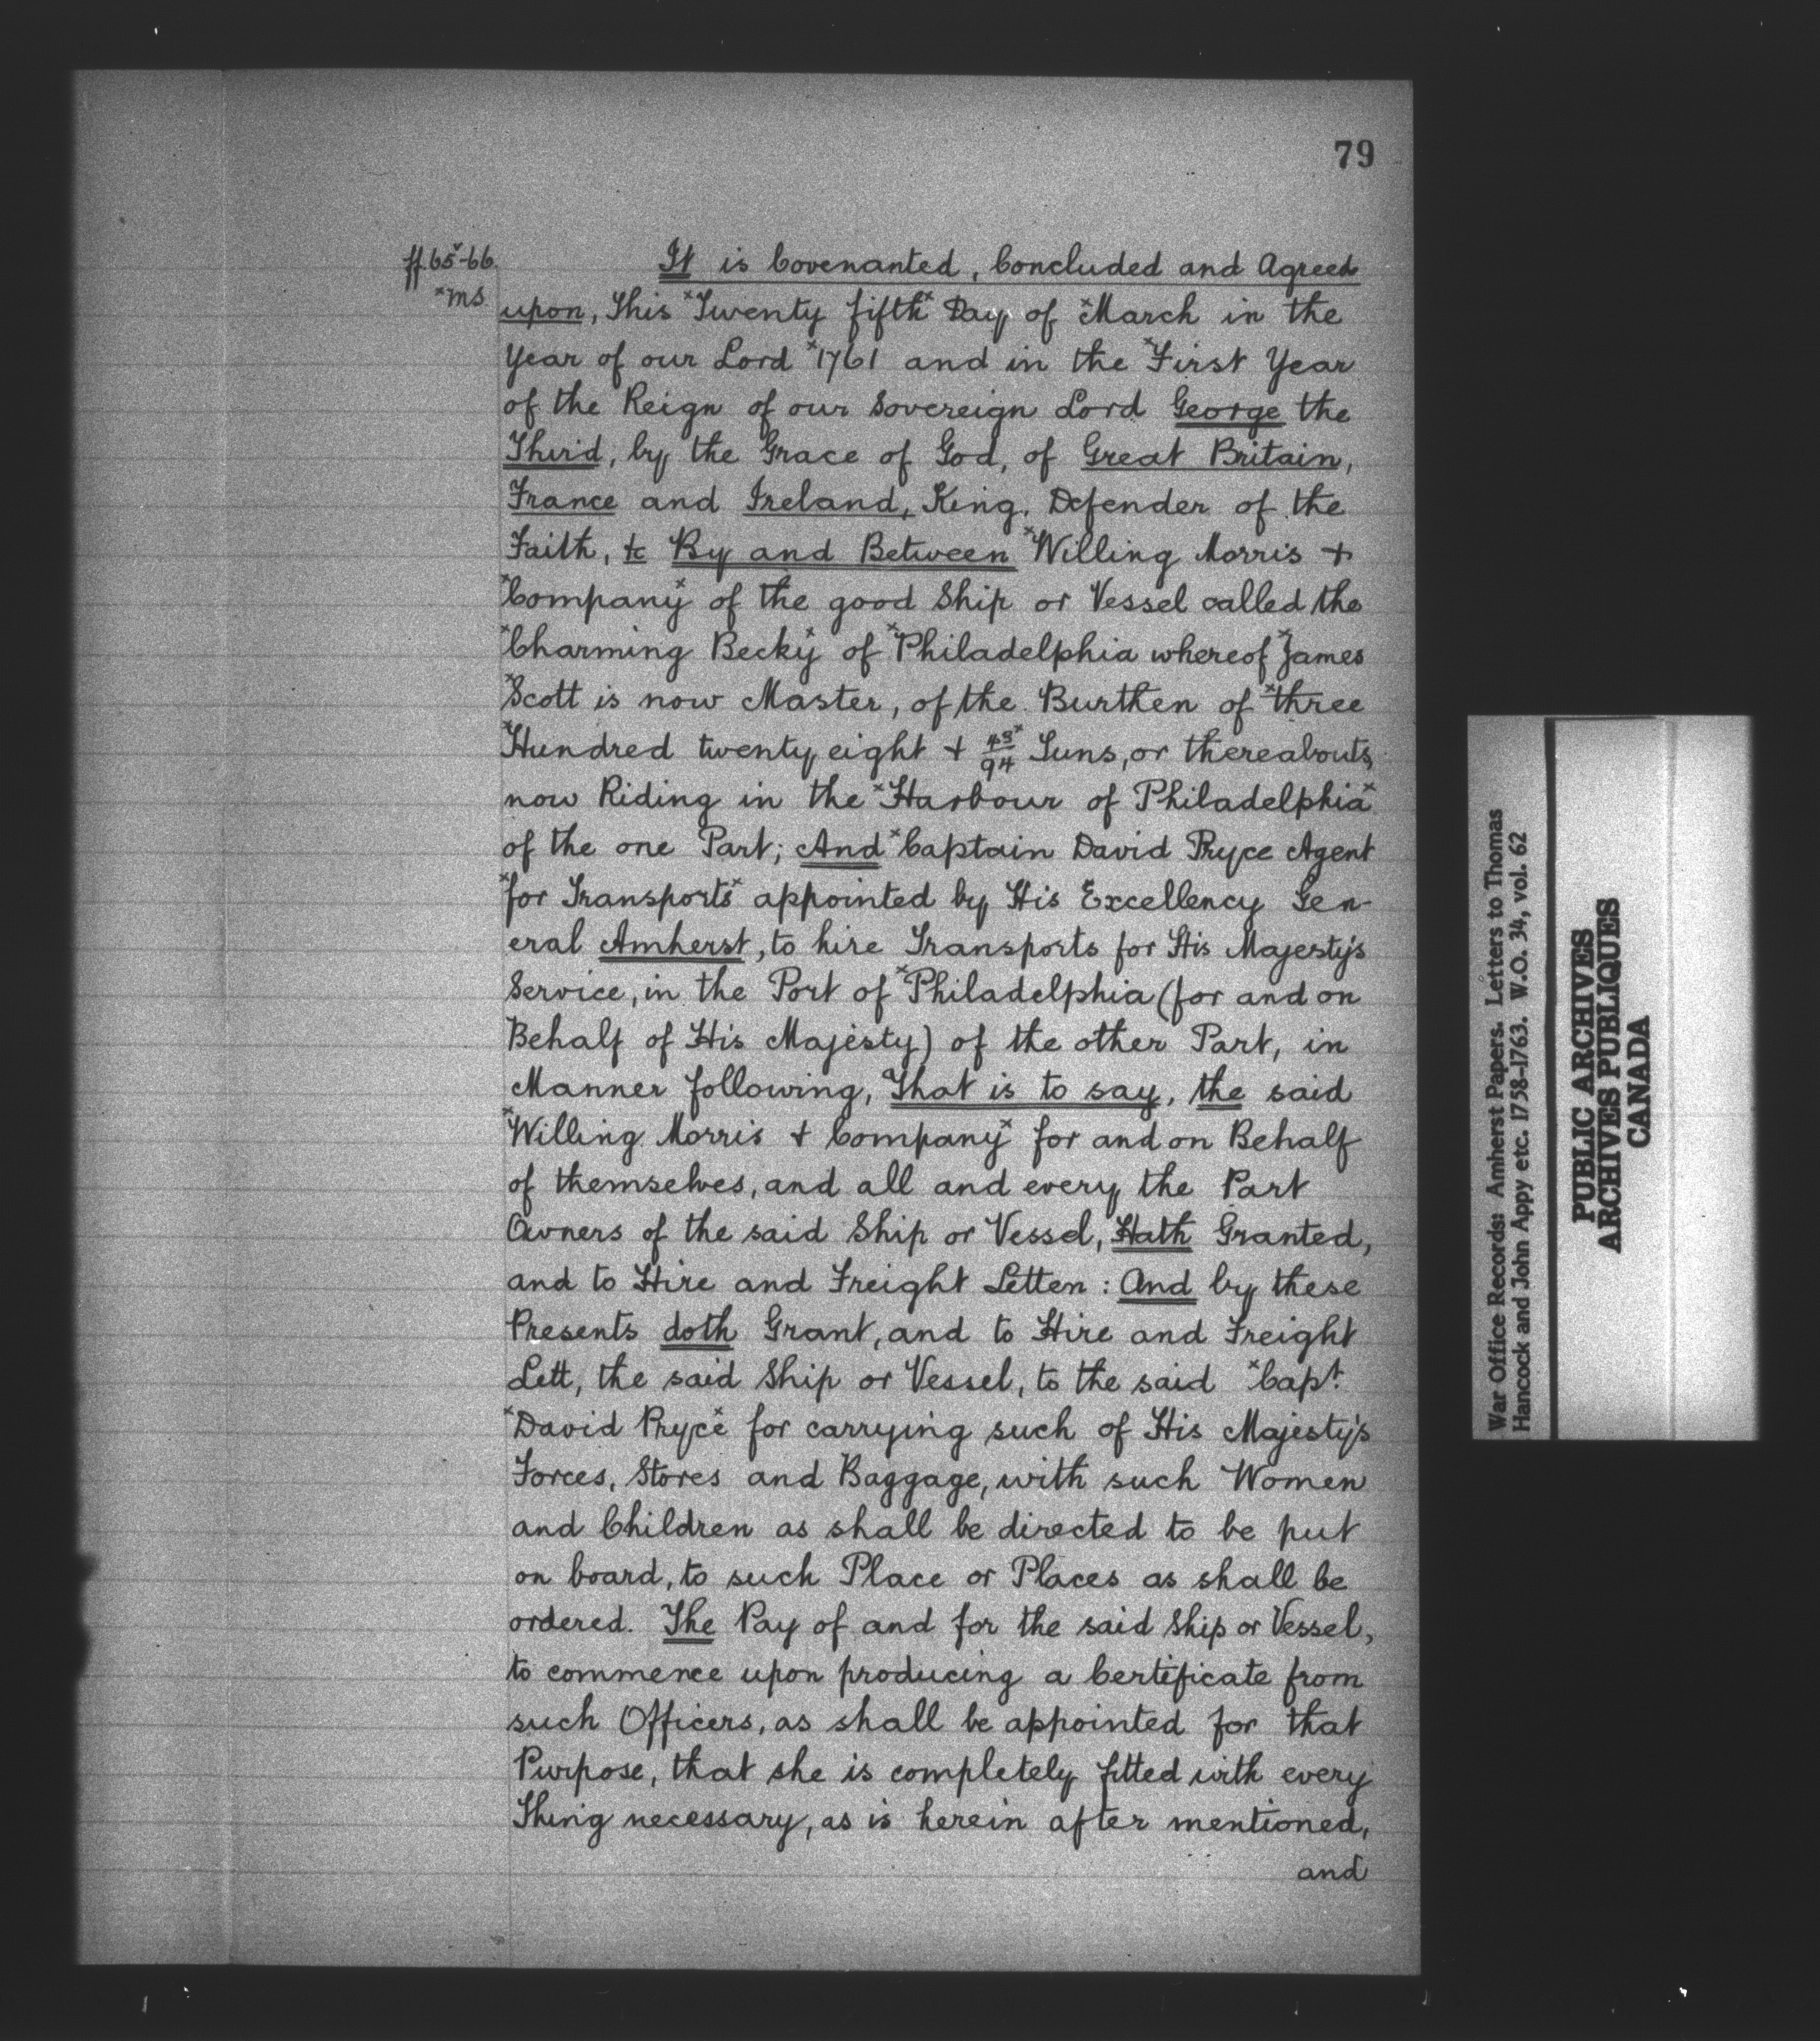 79
ff. 65ᵛ-66.
ˣms.
It is Covenanted, Concluded and Agreed
upon, This ˣTwenty fifthˣ Day of ˣMarch in the
Year of our Lord ˣ1761 and in the ˣFirst Year
of the Reign of our Sovereign Lord George the
Third, by the Grace of God, of Great Britain,
France and Ireland, King, Defender of the
Faith, &c By and Between ˣWilling Morris +
ˣCompanyˣ of the good Ship or Vessel called the
ˣCharming Beckyˣ of ˣPhiladelphia whereof ˣJames
ˣScott is now Master, of the Burthen of ˣthree
ˣHundred twenty eight + 43/94ˣ Tuns, or thereabouts,
now Riding in the ˣHarbour of Philadelphiaˣ
of the one Part; And ˣCaptain David Pryce Agent
ˣfor Transportsˣ appointed by His Excellency Gen-
eral Amherst, to hire Transports for His Majesty's
Service, in the Port of ˣPhiladelphia (for and on
Behalf of His Majesty) of the other Part, in
Manner following, That is to say, the said
ˣWilling Morris + Companyˣ for and on Behalf
of themselves, and all and every the Part
Owners of the said Ship or Vessel, Hath Granted,
and to Hire and Freight Letten: And by these
Presents doth Grant, and to Hire and Freight
Lett, the said Ship or Vessel, to the said ˣCapt.
ˣDavid Pryceˣ for carrying such of His Majesty's
Forces, Stores and Baggage, with such Women
and Children as shall be directed to be put
on board, to such Place or Places as shall be
ordered. The Pay of and for the said Ship or Vessel,
to commence upon producing a Certificate from
such Officers, as shall be appointed for that
Purpose, that she is completely fitted with every
Thing necessary, as is herein after mentioned,
and
War Office Records: Amherst Papers. Letters to Thomas
Hancock and John Appy etc. 1758-1763. W.O. 34, vol. 62
PUBLIC ARCHIVES
ARCHIVES PUBLIQUES
CANADA